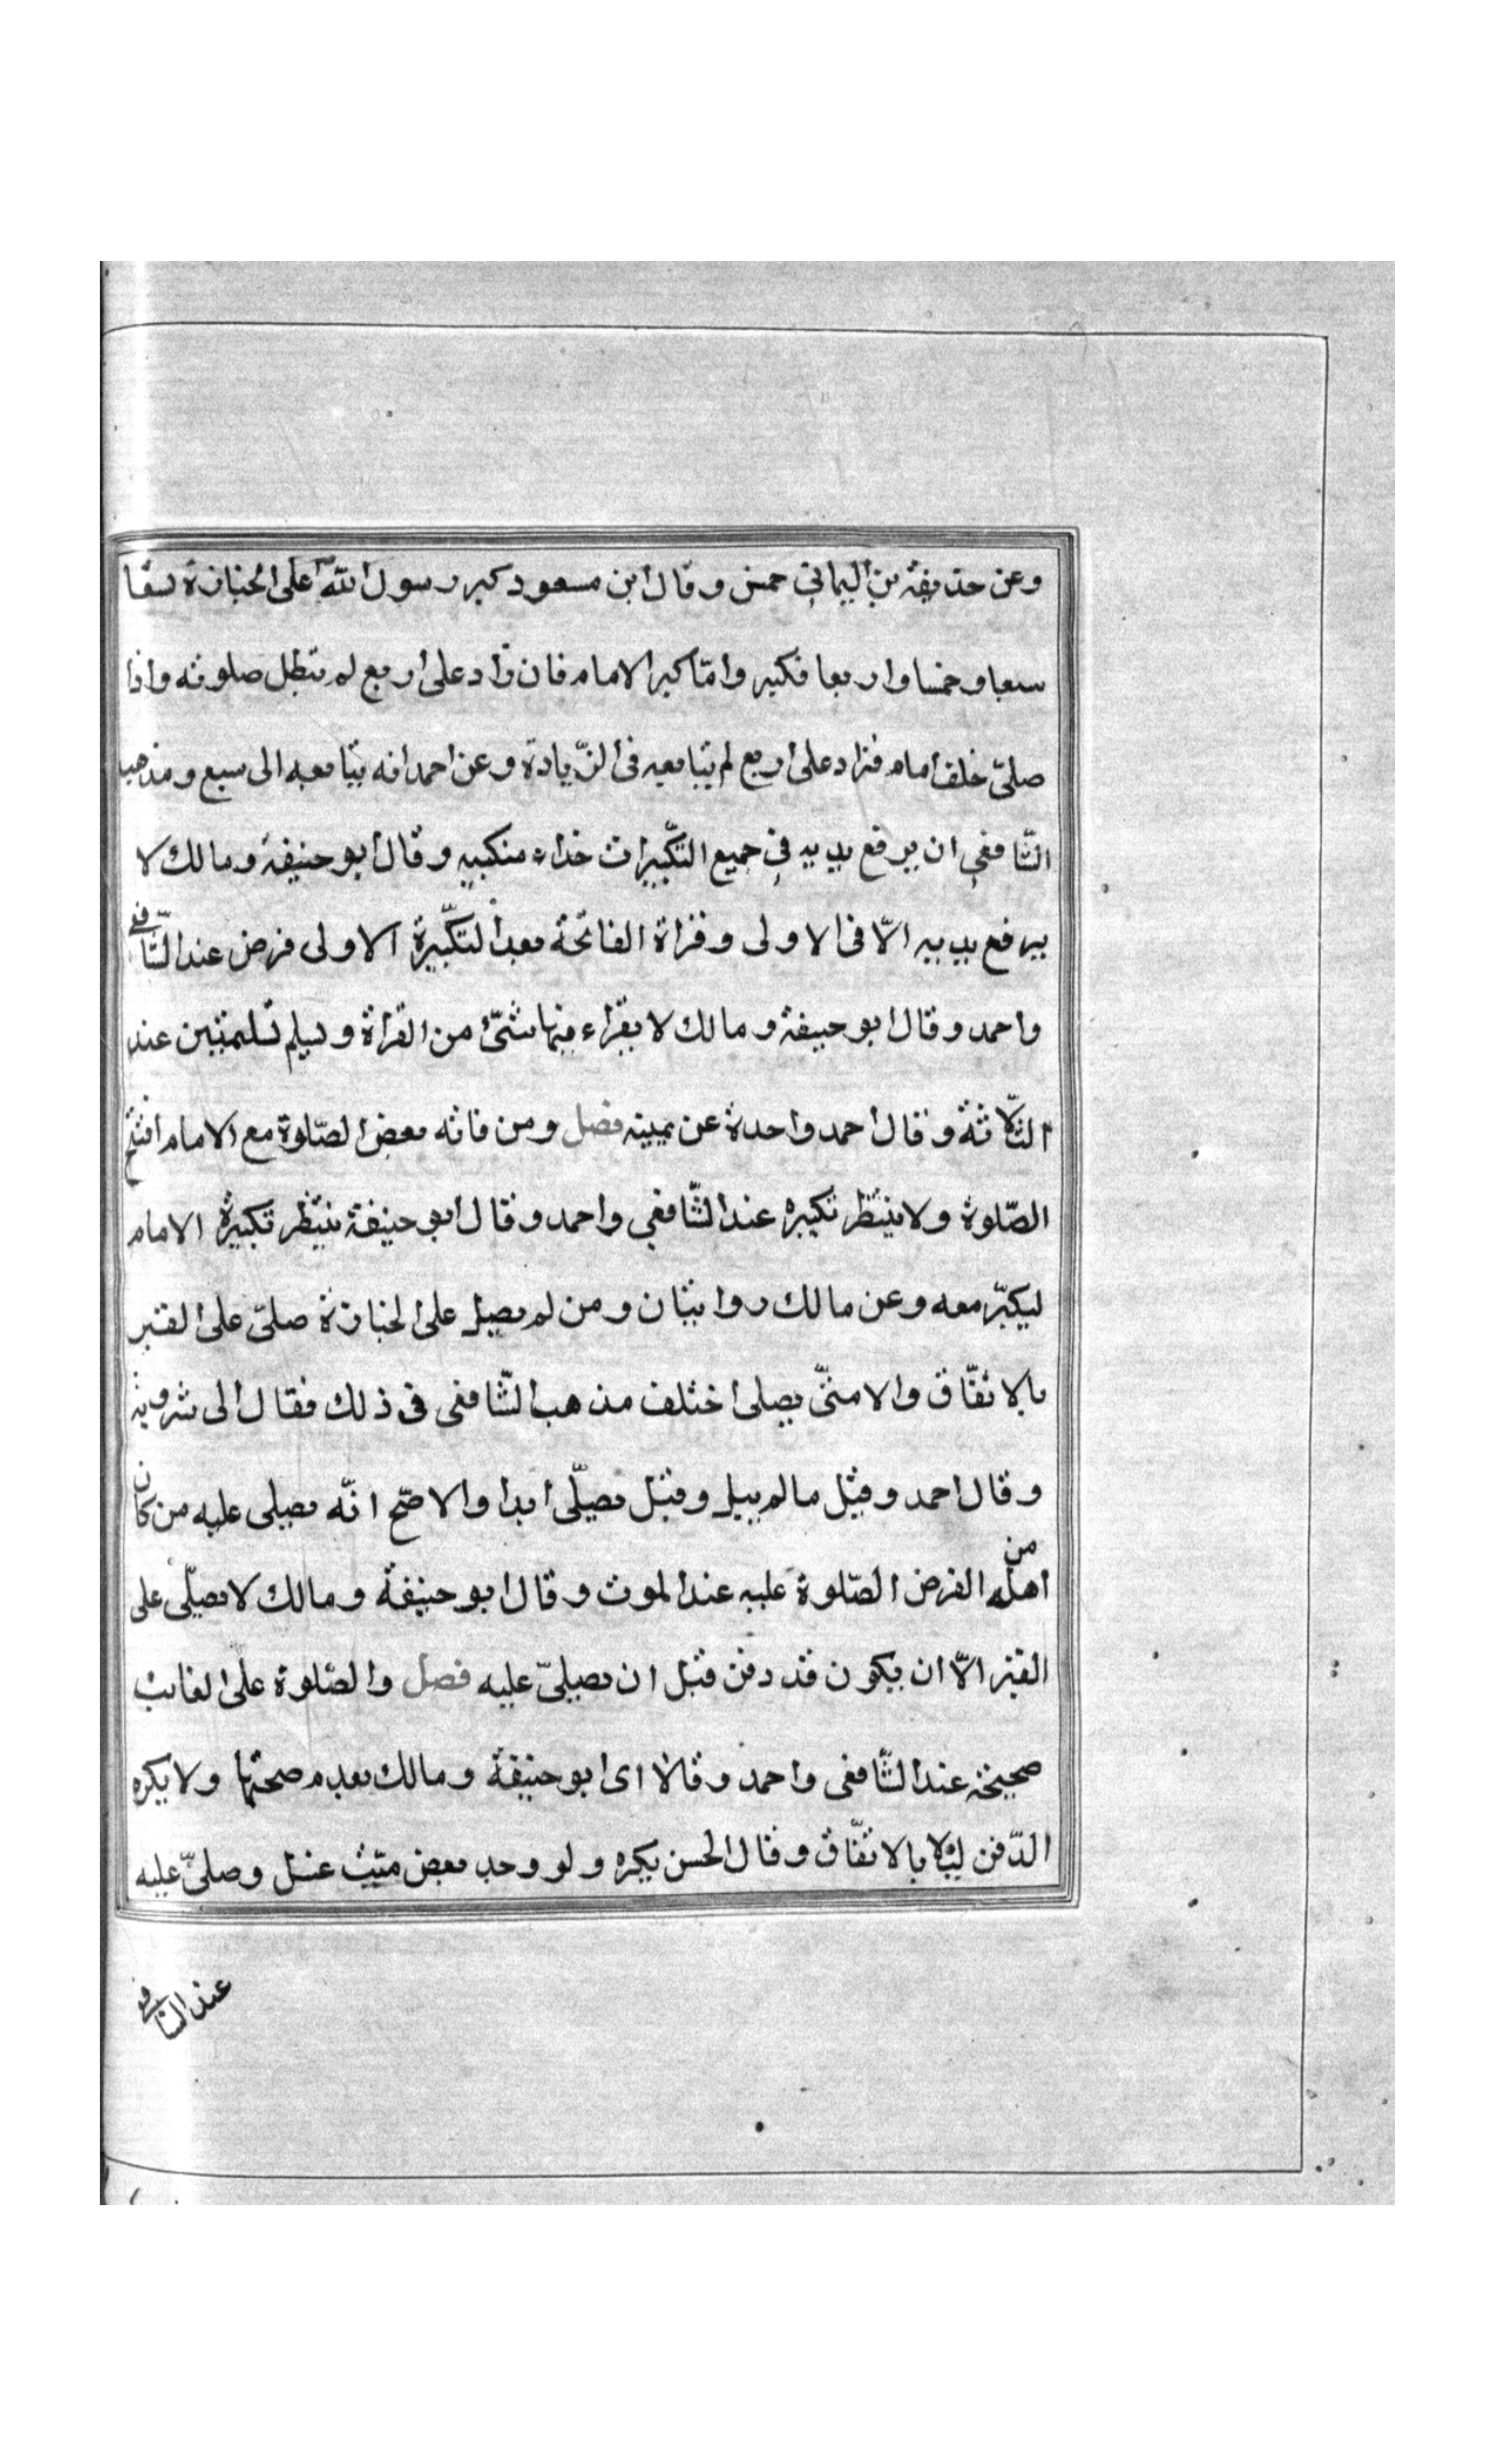 وعن حذيفة بن اليماني خمس وقال ابن مسعود كبر رسول الله على الجنازة تسعا
سبعا وخمسا واربعا فكبر وامّا كبر الامام فان زاد على اربع لم تبطل صلوته واذا
صلىّ خلف امام فزاد على اربع لم يتابعه فى الزّيادة وعن احمد انه يتابعه الى سبع ومذهب
الشّافعي ان يرفع يديه في جميع التكّبيرات حذاء منكبيه وقال ابو حنيفة ومالك لا
يرفع يديه الّا فى الاولى وقراة الفاتحة بعد التكّبيرة الاولى فرض عند الشّافعي
واحمد وقال ابو حنيفة ومالك لا يقراء فيها شئ من القراة ويسلم تسليمتين عند
الثّلاثة وقال احمد واحدة عن يمينه فصل ومن فاته بعض الصّلوة مع الامام افتتح
الصّلوة ولا ينتظر تكبيره عند الشّافعي واحمد وقال ابو حنيفة ينتظر تكبيرة الامام
ليكبّر معه وعن مالك روايتان ومن لم يصل على الجنازة صلىّ على القبر
بالاتفّاق والا متىّ يصلى اختلف مذهب الشّافعى فى ذلك فقال الى شهر وبه
وقال احمد وقيل ما لم يبل وقيل يصلّى ابدا والاصّح انّه يصلى عليه من كان
من اهله الفرض الصّلوة عليه عند الموت وقال ابو حنيفة ومالك لا يصلّى على
القبر الّا ان يكون قد دفن قبل ان يصلىّ عليه فصل والصّلوة على الغائب
صحيحة عند الشّافعى واحمد وقالا اى ابو حنيفة ومالك بعدم صحتها ولا يكره
الدّفن ليلا بالاتفّاق وقال الحسن يكره ولو وجد بعض ميّت غسل وصلىّ عليه
عند الشافعي